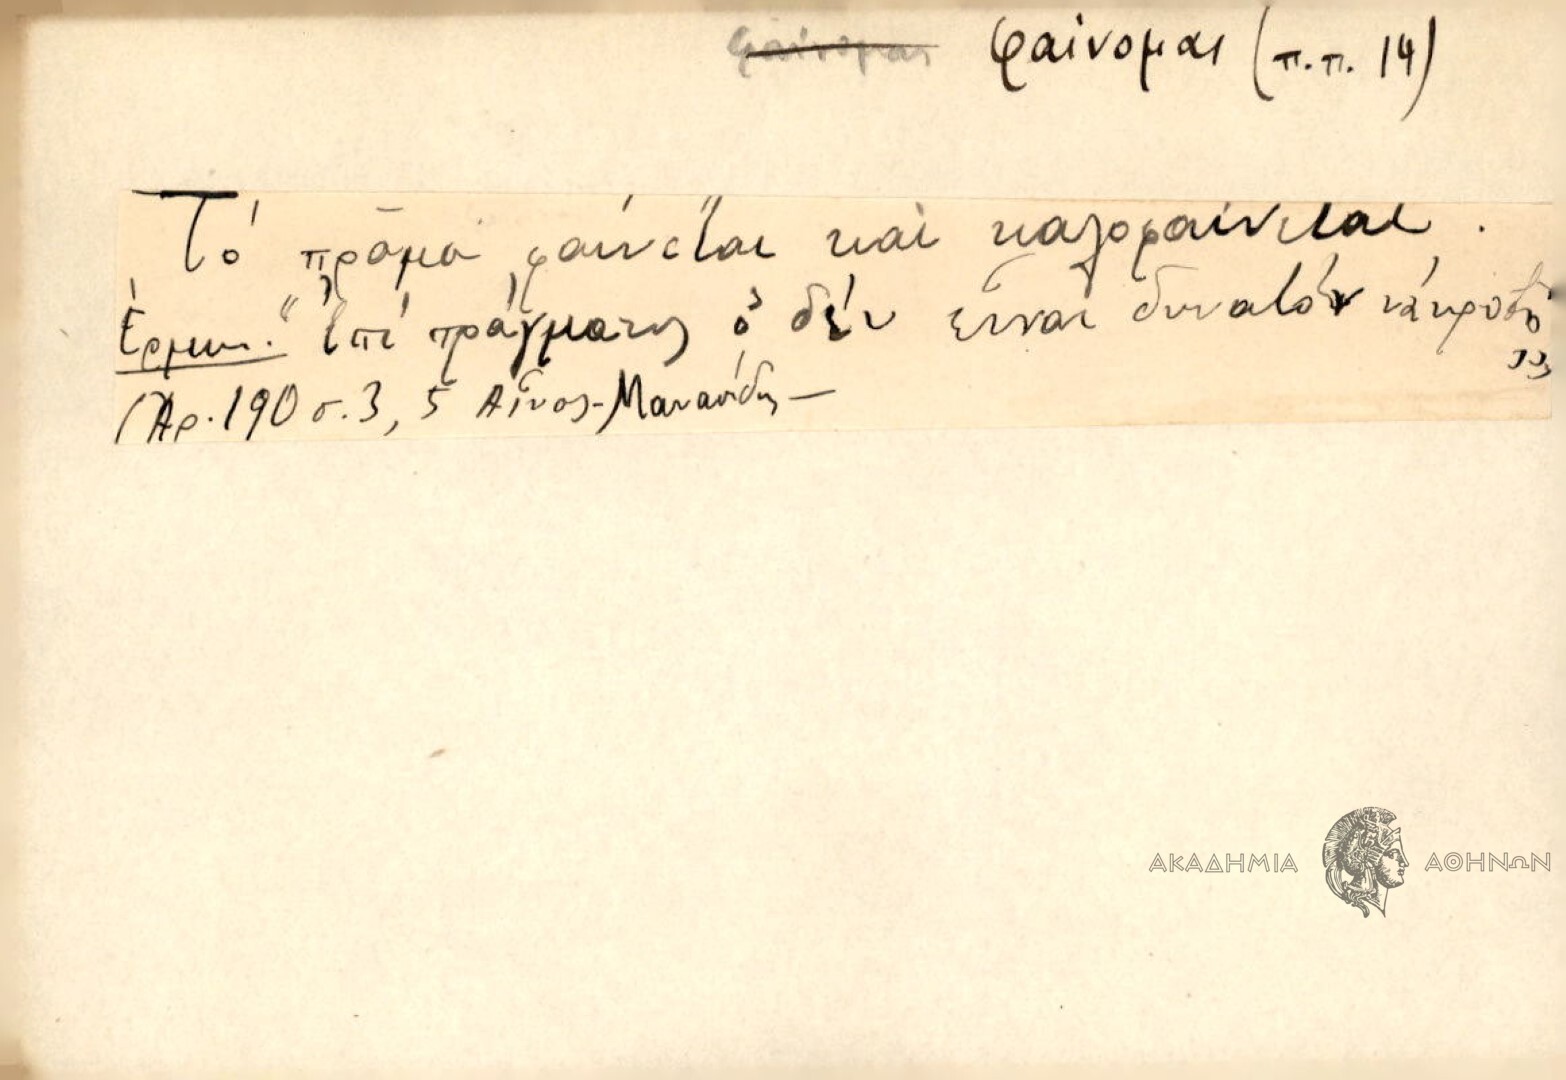 φαίνομαι φαίνομαι (π.π. 14)
Τό πρᾶμα φαίνεται καί καλοφαίνεται.
Ἑρμην. "Ἐπί πράγματος ὅ δέν εἶναι δυνατόν νά κρυβῇ
(Ἀρ. 190 σ. 3, 5 Αἶνος-Μανασίδης—
ΑΚΑΔΗΜΙΑ ΑΘΗΝΩΝ